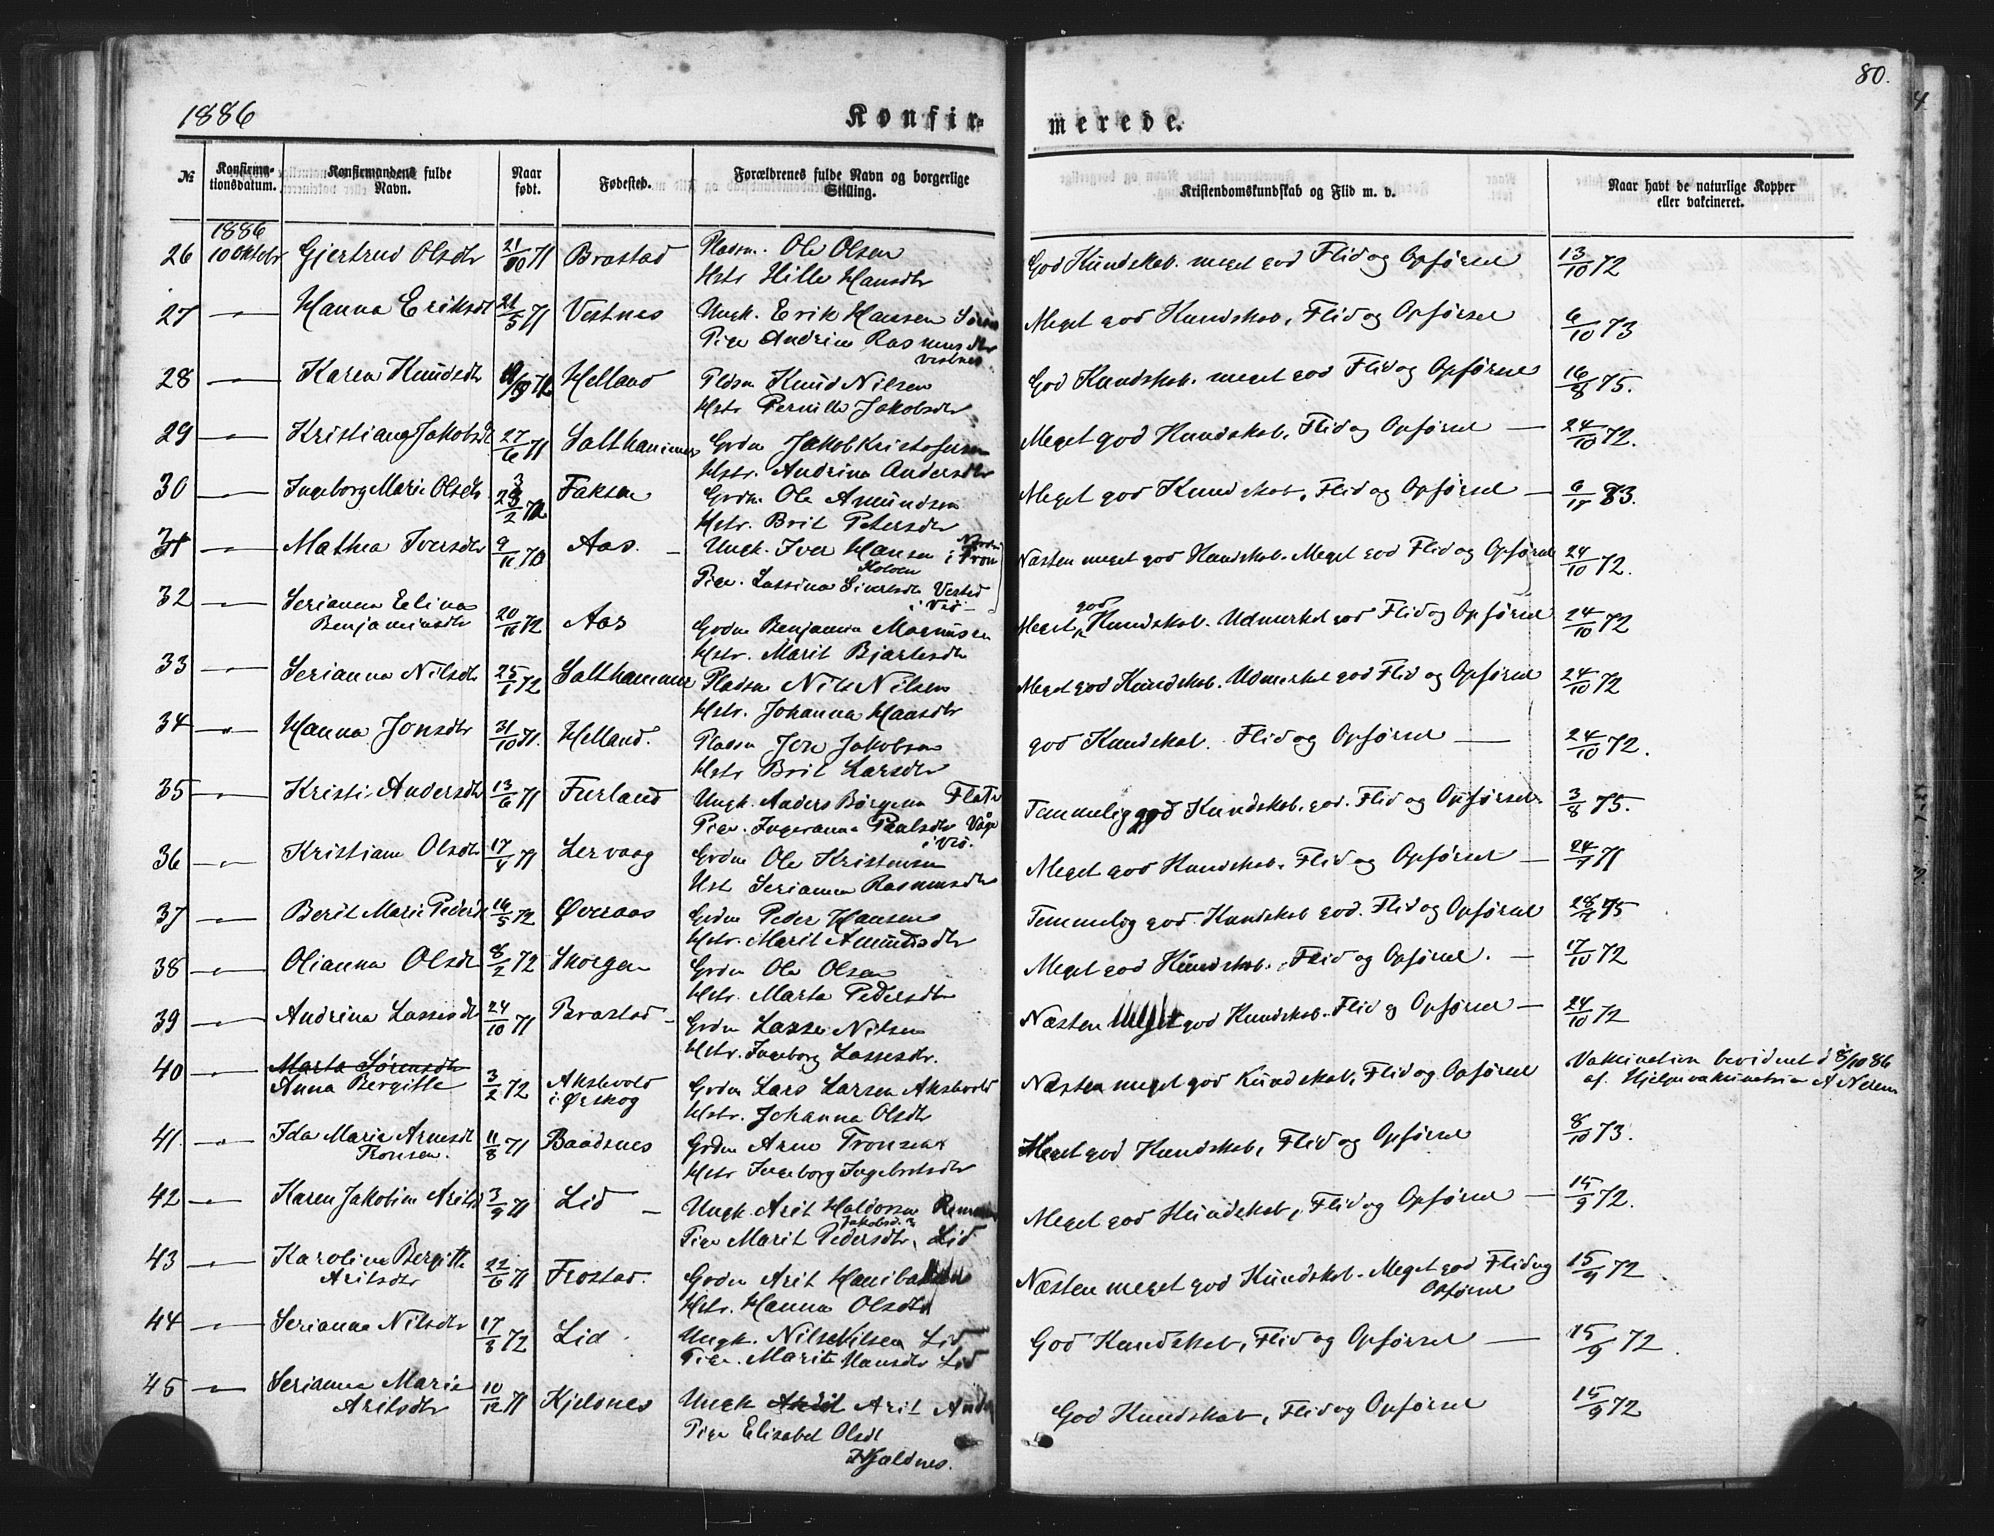 80.
1886 Konfir- merede.
№ Konfirma-tionsdatum. Konfirmandens fulde Navn. Naar født. Fødested. Forældrenes fulde Navn og borgerlige Stilling. Kristendomskundskab og Flid m. v. Naar havt de naturlige Kopper eller vakcineret.
1886
26 10 Oktobr Gjertrud Olsdtr 21/10 71 Brastad Pladsm. Ole Olsen God Kundskab. meget god Flid og Opførsel 13/10 72
Hstr Hille Hansdtr
27 —"— Hanna Eriksdt 21/5 71 Vestnes Ungk. Erik Hansen Meget god Kundskab, Flid og Opførsel 6/10 73
Pige Andrine Rasmusdtr
Vestnes
28 —"— Karen Knudsdtr Helland Pldsm Knud Nilsen God Kundskab. meget god Flid og Opførsel 16/8 75.
Hstr Pernille Jakobsdtr
29 —"— Kristiane Jakobsdt 27/6 71 Salthammer Grdm Jakob Kristofersen Meget god Kundskab, Flid og Opførsel — 24/10 72.
Hstr. Andrina Andersdtr
30 —"— Ingeborg Marie Olsdtr Faksen Grdm. Ole Amundsen Meget god Kundskab, Flid og Opførsel — 6/11 83.
Hstr. Brit Petersdtr
31 —"— Mathea Iversdtr 9/11 70 Aas. — Ungk. Iver Hansen Næsten meget god Kundskab. Meget god Flid og Opførsel 24/10 72.
Pige. Lassina Sivertsdtr Vestad
i Vrø —
32 —"— Serianna Elina
Benjaminsdtr 20/11 72 Aas Grdm Benjamin Magnusen Meget god Kundskab. Udmerket god Flid og Opførsel 24/10 72
Hstr. Marit Bjartesdtr
33 —"— Serianna Nilsdtr 25/1 72 Salthammer Pladsm Nils Nilsen Meget god Kundskab. Udmerket god Flid og Opførsel 24/10 72
Hstr. Johanna Hansdtr
34 —"— Hanna Jonsdtr 31/10 71. Helland. Pladsm Jon Jakobsen god Kundskab. Flid og Opførsel — 24/10 72.
Hstr Brit Larsdtr
35 —"— Kristi Andersdtr 13/6 71 Furland Ungk. Anders Børgesen Temmelig god Kundskab. god. Flid og Opførsel. 3/8 75.
Pige. Ingeranna Paulsdtr Våge
i Vrø.
36 —"— Kristiane Olsdtr 17/9 71 Lervaag Grdm Ole Kristensen Meget god Kundskab. Flid og Opførsel — 24/9 71
Hst Serianna Rasmusdtr
37 —"— Berit Marie Pedersdt 16/5 72 Øveraas Grdm Peder Hansen Temmelig god. Kundskab god. Flid og Opførsel 28/4 75
Hstr. Marit Amundsdtr
38 —"— Olianna Olsdt 8/2 72 Skorgen Grdm Ole Olsen Meget god Kundskab. Flid og Opførsel. — 17/10 72
Hstr. Marta Pedersdtr
39 —"— Andrina Lassesdtr 24/10 71 Brastad — Grdm Lasse Nilsen Næsten meget god Kundskab. Flid og Opførsel — 24/10 72
Hstr. Ingeborg Lassesdtr.
40 —"— Marta Sørensdtr
Anna Bergitte 3/2 72 Akshvold
i Ørskog Grdm Lars Larsen Akshvold Næsten meget god Kundskab, Flid og Opførsel Vakcination bevidnet d 8/10 86
af Hjelpevakcinatrice
Hstr. Johanna Olsdtr
41 —"— Ida Marie Arnesdt
Tronsen. 11/8 71 Baadsnes Grdm Arne Tronsen Meget god Kundskab, Flid og Opførsel 8/10 73.
Hstr Ingeborg Ingebretsdtr
42 —"— Karen Jakobine Aritsdt 3/9 71 Lid — Ungk. Arit Haldorsen Meget god Kundskab, Flid og Opførsel — 15/9 72.
Pige Marit Pedersdtr, Lid
43 —"— Karoline Bergitte
Aritsdtr 22/6 71 Frostad. Grdm Arit Næsten meget god Kundskab. Meget god Flid og
Opførsel 15/9 72.
Hstr. Hanna Olsdtr
44 —"— Serianne Nilsdtr 17/3 72 Lid Ungk. Nils Nilsen Lid God Kundskab, Flid og Opførsel — 15/9 72
Pige. Marit Hansdtr Lid
45 —"— Serianne Marie
Aritsdtr 10/12 71 Kjelsnes Ungk Arit God Kundskab, Flid og Opførsel 15/9 72
Pige Elisabet Olsdt
Kjelsnes.